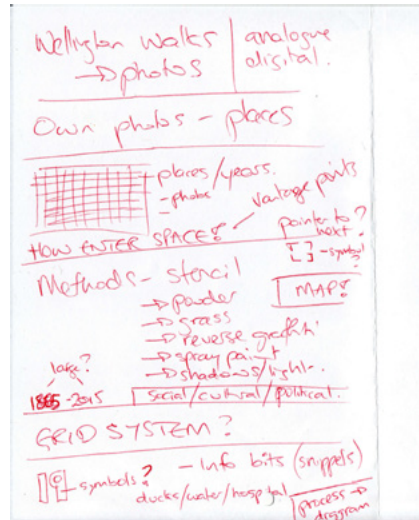 Wellington Walks
→ photos
analogue
digital.
Own photos - places
places/years.
- photos
vantage points
HOW ENTER SPACE?
pointer to next?
[ ] - symbol?
Methods - stencil
→ powder
→ grass
→ reverse graffiti
→ spray paint
→ shadows/light-.
MAP?
large?
1885-2015
social/cultural/political.
GRID SYSTEM?
symbols?
- Info bits (snippets)
ducks/water/hospital
process →
diagram